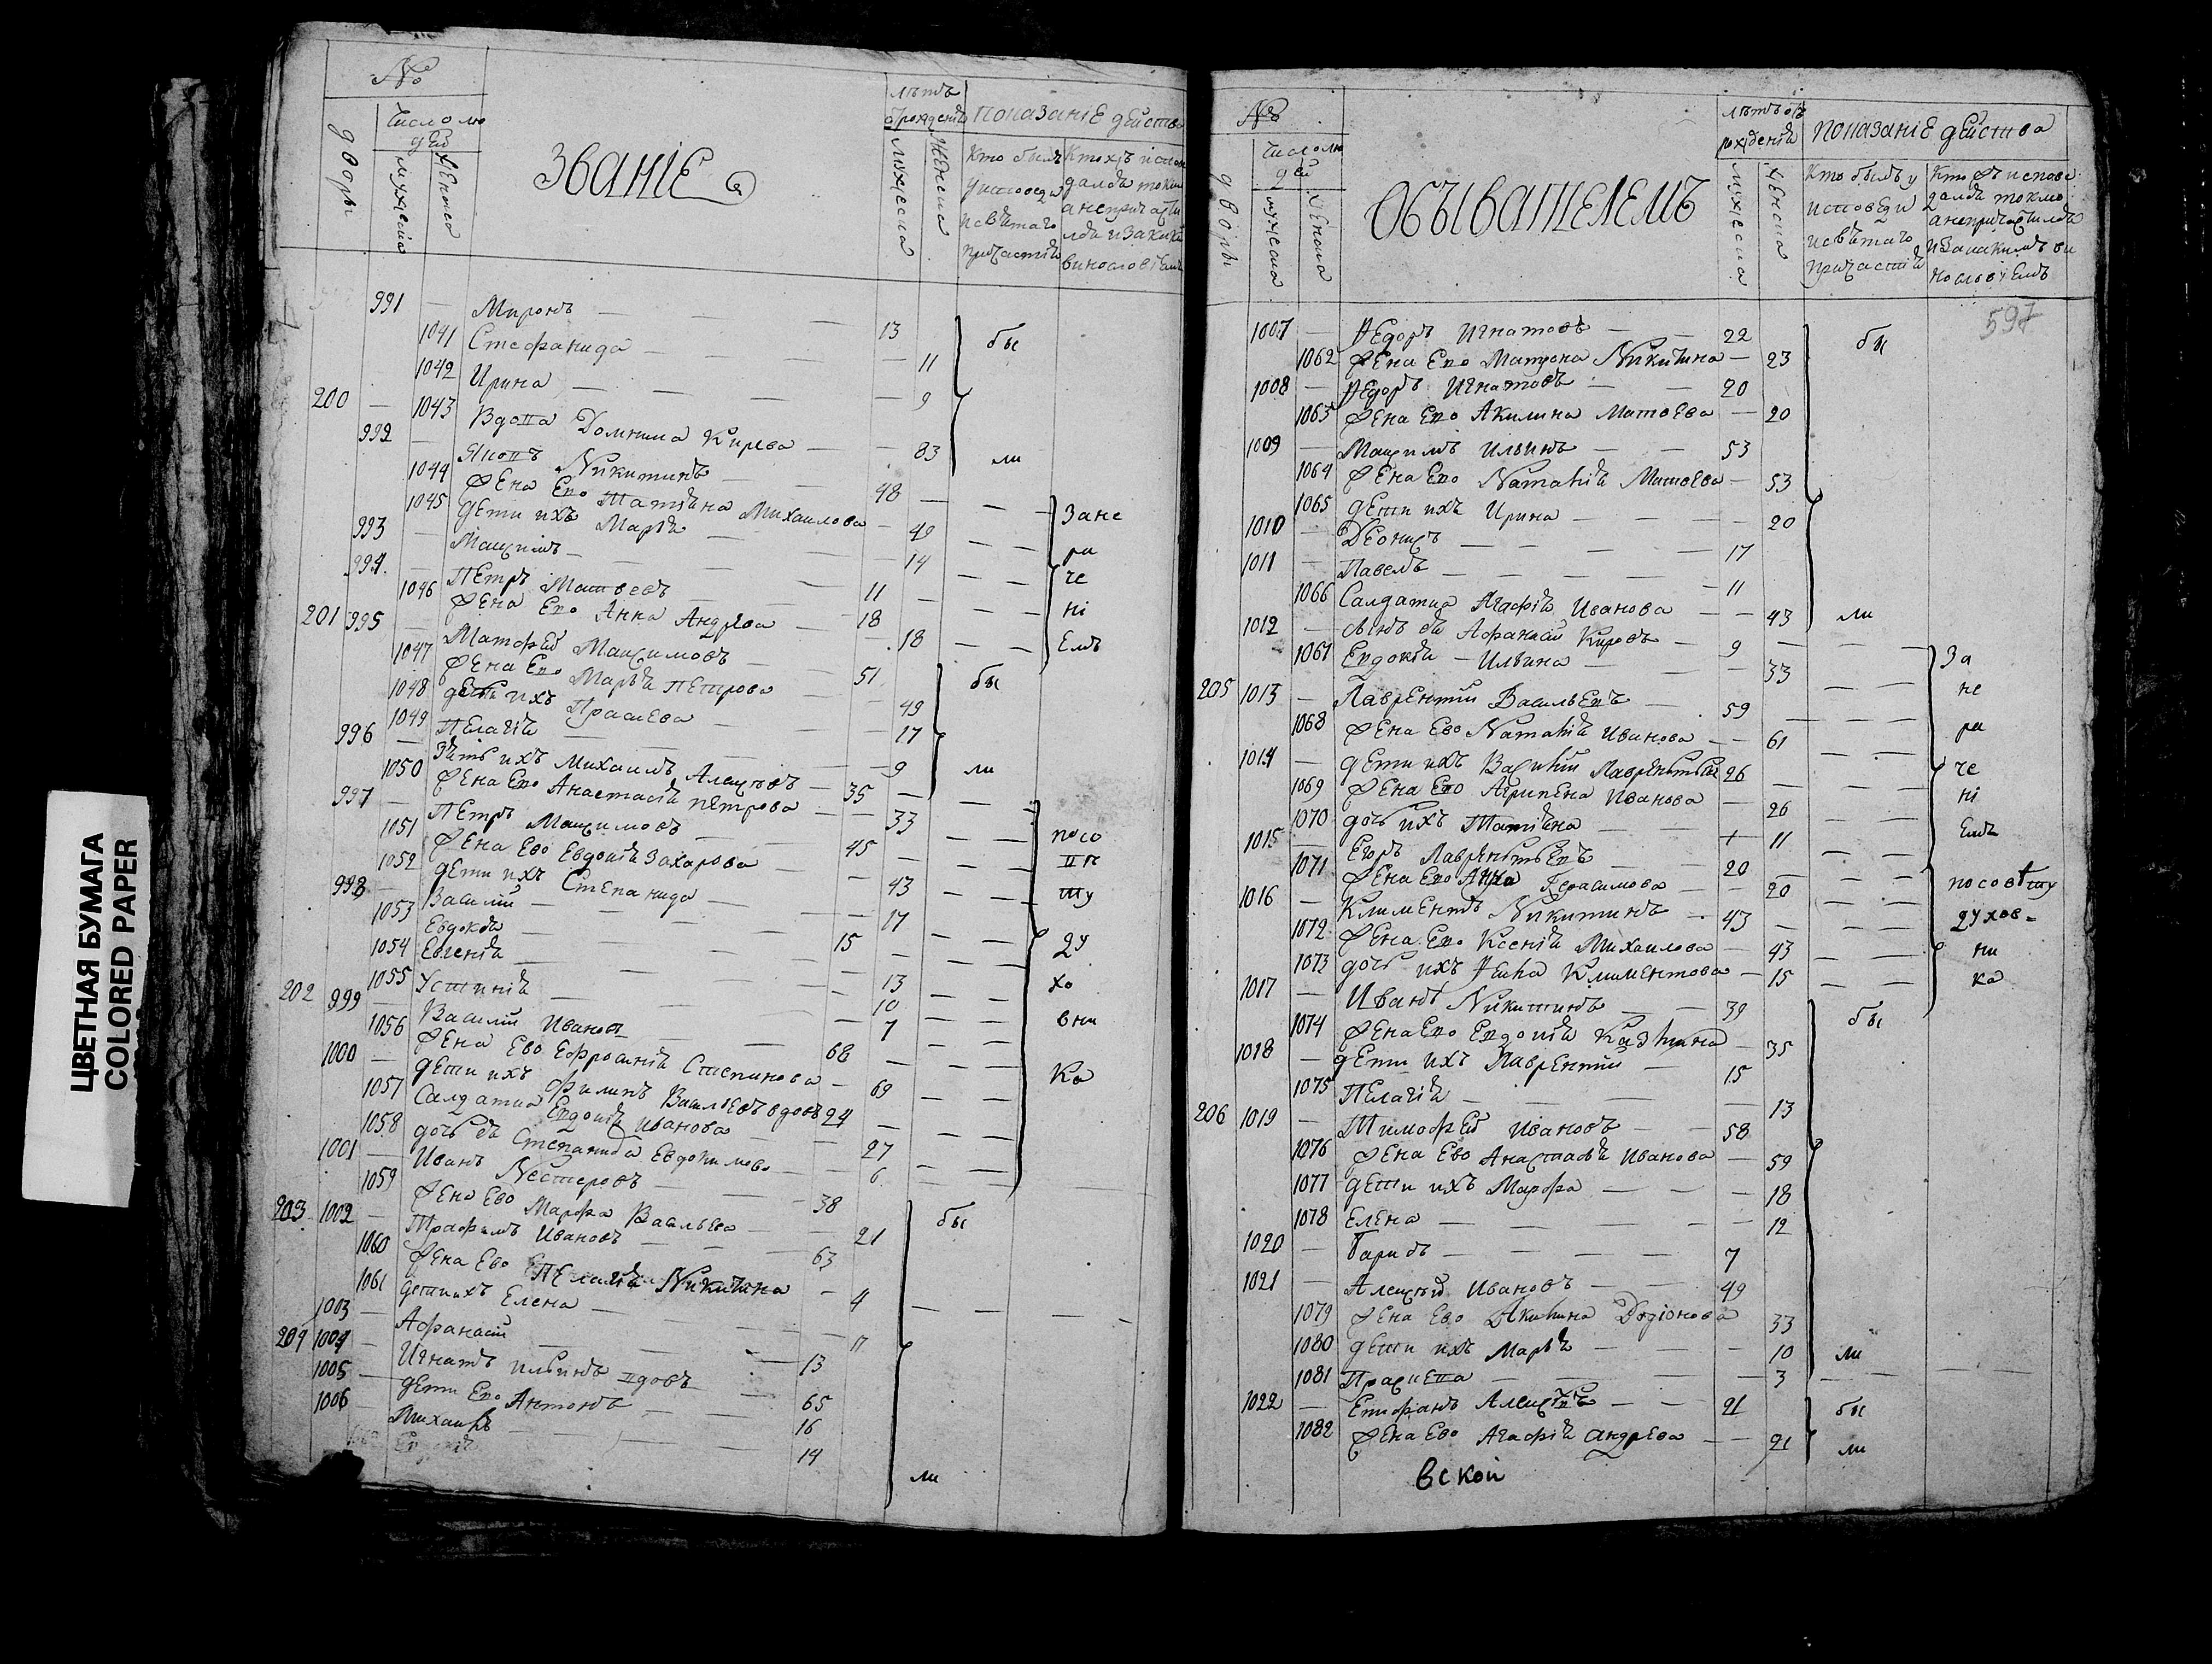 ЦВЕТНАЯ БУМАГА
COLORED PAPER
№
дворы
число людей
мужеска
женска
ЗВАНІЕ
лѣтъ
мужеска
женска
показаніе действа
кто былъ у исповеди и святаго причастія
991 — Миронъ — — — 13
1041 Стефанида — — 11 бы
1042 Ирина — — — 9
200 — 1043 Вдова Домника Кирева — — 83 ли
992 — Яковъ Никитинъ — — 48 —
1044 жена Ево Татіяна Михаилова — 49 Зане
1045 дети ихъ Марія — — 14 ра
993 — Маѯимъ — — — 11 че
994 — Петръ Матвеевъ — — 18 ні
1046 жена Ево Анна Андрева — 18 Емъ
201 995 — Матфей Маѯимовъ — 51 бы
1047 жена Ево Марѳа Петрова — 49
1048 дети ихъ Прасковa — 17
1049 Пелагія — — — 9 ли
996 — Зять ихъ Михаилъ Алеѯеевъ — 35
1050 жена Ево Анастасія Петрова — 33
997 — Петръ Маѯимовъ — 45 посо
1051 жена Ево Евдокія Захарова — 43 ве
1052 дети ихъ Степанида — — 17 ту
998 — Василій — — — 15
1053 Евдокія — — — 13 ду
1054 Евгенія — — — 10 хо
1055 Устинія — — — 7 вни
202 999 — Василій Ивановъ — — 68
1056 жена Ево Ефросинія Степанова — 69 Ка
1000 — дети ихъ Филипъ Васильевъ вдовъ 24
1057 Салдатка Евдокія Иванова — 27
1058 дочь ея Степанида Евдокимова — 6
1001 — Иванъ Нестеровъ — — 38 бы
1059 жена Ево Марфа Васильева — 21
203 1002 — Трафимъ Ивановъ — — 63
1060 жена Ево Пелагія Никитина — 4
1061 дети ихъ Елена — — 11
1003 — Афанасій — — — 13
204 1004 — Игнатъ Ильинъ вдовъ — 65
1005 — дети Ево Антонъ — — 16
1006 — Михаилъ — — — 14
ли
№
дворы
число людей
мужеска
женска
ОБЫВАТЕЛЕМЪ
лѣтъ отъ рожденія
мужеска
женска
показаніе действа
кто былъ у исповеди и святаго причастія
597
1007 — Ѳедоръ Игнатовъ — — 22 бы
1062 жена Ево Матрона Никитина — 23
1008 — Ѳедоръ Игнатовъ — — 20
1063 жена Ево Акилина Матвева — 20
1009 — Маѯимъ Ильинъ — — 53
1064 жена Ево Наталія Матвева — 53
1065 дети ихъ Ирина — — — 20
1010 — Деонисъ — — — 17
1011 — Павелъ — — — 11
1066 Салдатка Агафія Иванова — — 43 ли
1012 — сынъ ея Афанасій Кировъ — 9
1067 Евдокія Ильина — — 33 За
205 1013 — Лаврентій Васильевъ — 59 не
1068 жена Ево Наталія Иванова — — 61 ра
1014 — дети ихъ Василій Лаврентьевъ 26 че
1069 жена Ево Агрипена Иванова — 26 ні
1070 дочь ихъ Татіяна — — 11 Емъ
1015 — Егоръ Лаврентьевъ — 20
1071 жена Ево Анна Герасимова — — 20 посовѣту
1016 — Климентъ Никитинъ — 43 духов-
1072 жена Ево Ксенія Михаилова — 43 ни
1073 дочь ихъ Анна Климентова — 15 ка
1017 — Иванъ Никитинъ — — 39 бы
1074 жена Ево Евдокія Казмина — 35
1018 — дети ихъ Лаврентій — 15
1075 Пелагія — — — — 13
206 1019 — Тимофей Ивановъ — — 58
1076 жена Ево Анастасія Иванова — 59
1077 дети ихъ Марфа — — — 18
1078 Елена — — — — 12
1020 — Барисъ — — — — 7
1021 — Алеѯѣй Ивановъ — — 49
1079 жена Ево Акилина Родіонова 33
1080 дети ихъ Марія — — — 10 ли
1081 Прасковa — — — — 3
1022 — Епифанъ Алеѯѣевъ — — 21 бы
1082 жена Ево Агафія Андрева — — 21 ли
вской